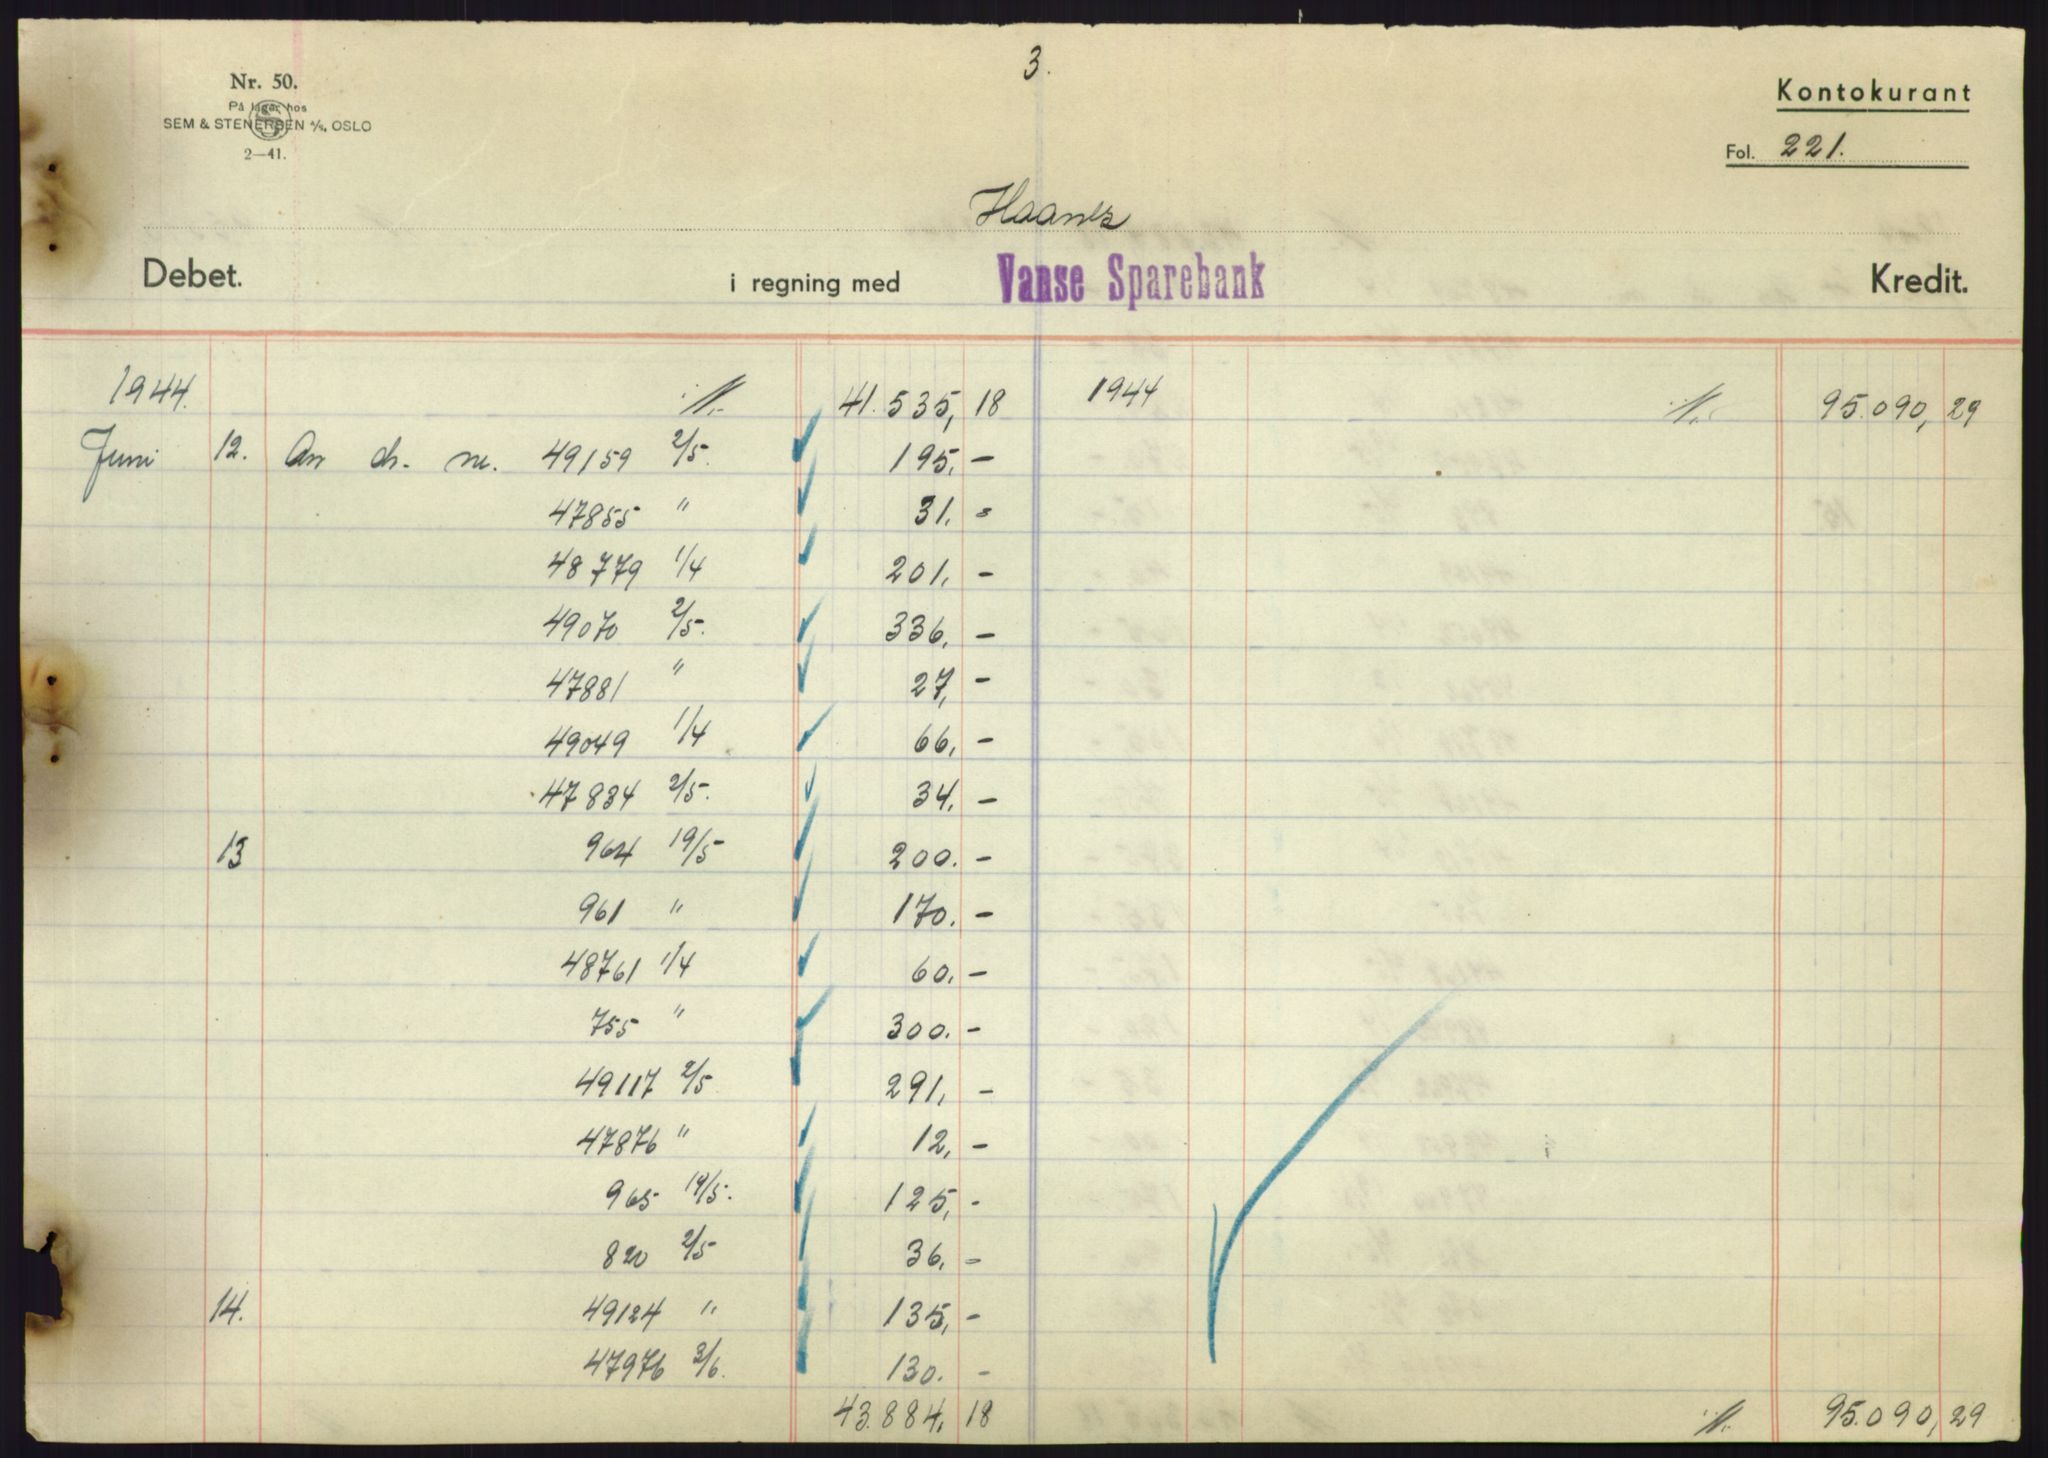 3.
Nr. 50.
På lager hos
SEM & STENERSEN A/S, OSLO
2—41.
Kontokurant
Fol. 221.
Haanes
Debet. i regning med Vanse Sparebank Kredit.
1944. ·/· 41.535, 18 1944 ·/· 95.090, 29
Juni 12. An ch. nr. 49159 2/5. 195, –
47855 " 31. –
48779 1/4 201, –
49070 2/5. 336, –
47881 " 27, –
49049 1/4 66, –
47834 2/5. 34, –
13 964 19/5 200. –
961 " 170. –
48761 1/4 60, –
755 " 300. –
49117 2/5 291, –
47876 " 12, –
965 19/5. 125, –
820 2/5 36, –
14. 49124 " 135, –
47976 3/6. 130. –
43.884, 18 ·/· 95.090, 29